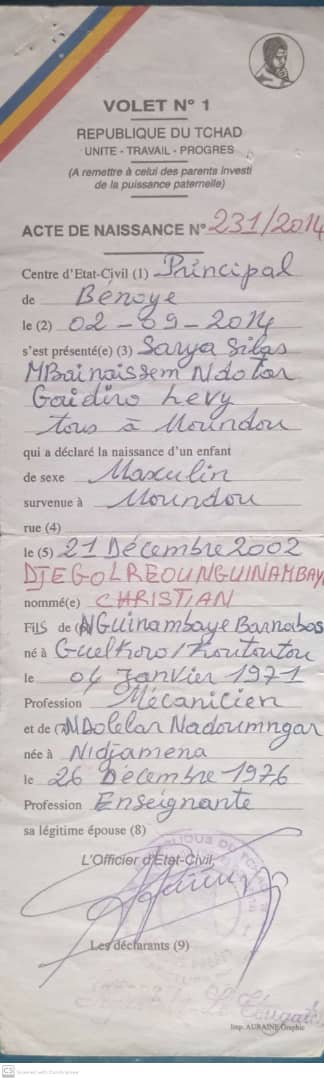 VOLET N° 1
REPUBLIQUE DU TCHAD
UNITE - TRAVAIL - PROGRES
(A remettre à celui des parents investi
de la puissance paternelle)
ACTE DE NAISSANCE N° 231/2014
Centre d'Etat-Civil (1) Principal
de Bénoye
le (2) 02-09-2014
s'est présenté(e) (3) Sarya Silas
MBainaissem Ndotar
Gaidiro Levy
tous à Moundou
qui a déclaré la naissance d'un enfant
de sexe Masculin
survenue à Moundou
rue (4)
le (5) 21 Décembre 2002
DJEGOLREOUNGUINAMBAY
nommé(e) CHRISTIAN
Fils de (6) NGuinambaye Barnabas
né à Guelkoro/Koutoutou
le 04 Janvier 1971
Profession Mécanicien
et de (7) NDolelar Nadoumngar
née à Ndjamena
le 26 Décembre 1976
Profession Enseignante
sa légitime épouse (8)
L'Officier d'Etat-Civil,
Les déclarants (9)
Imp. AUBAINE Graphic
CS Scanned with CamScanner